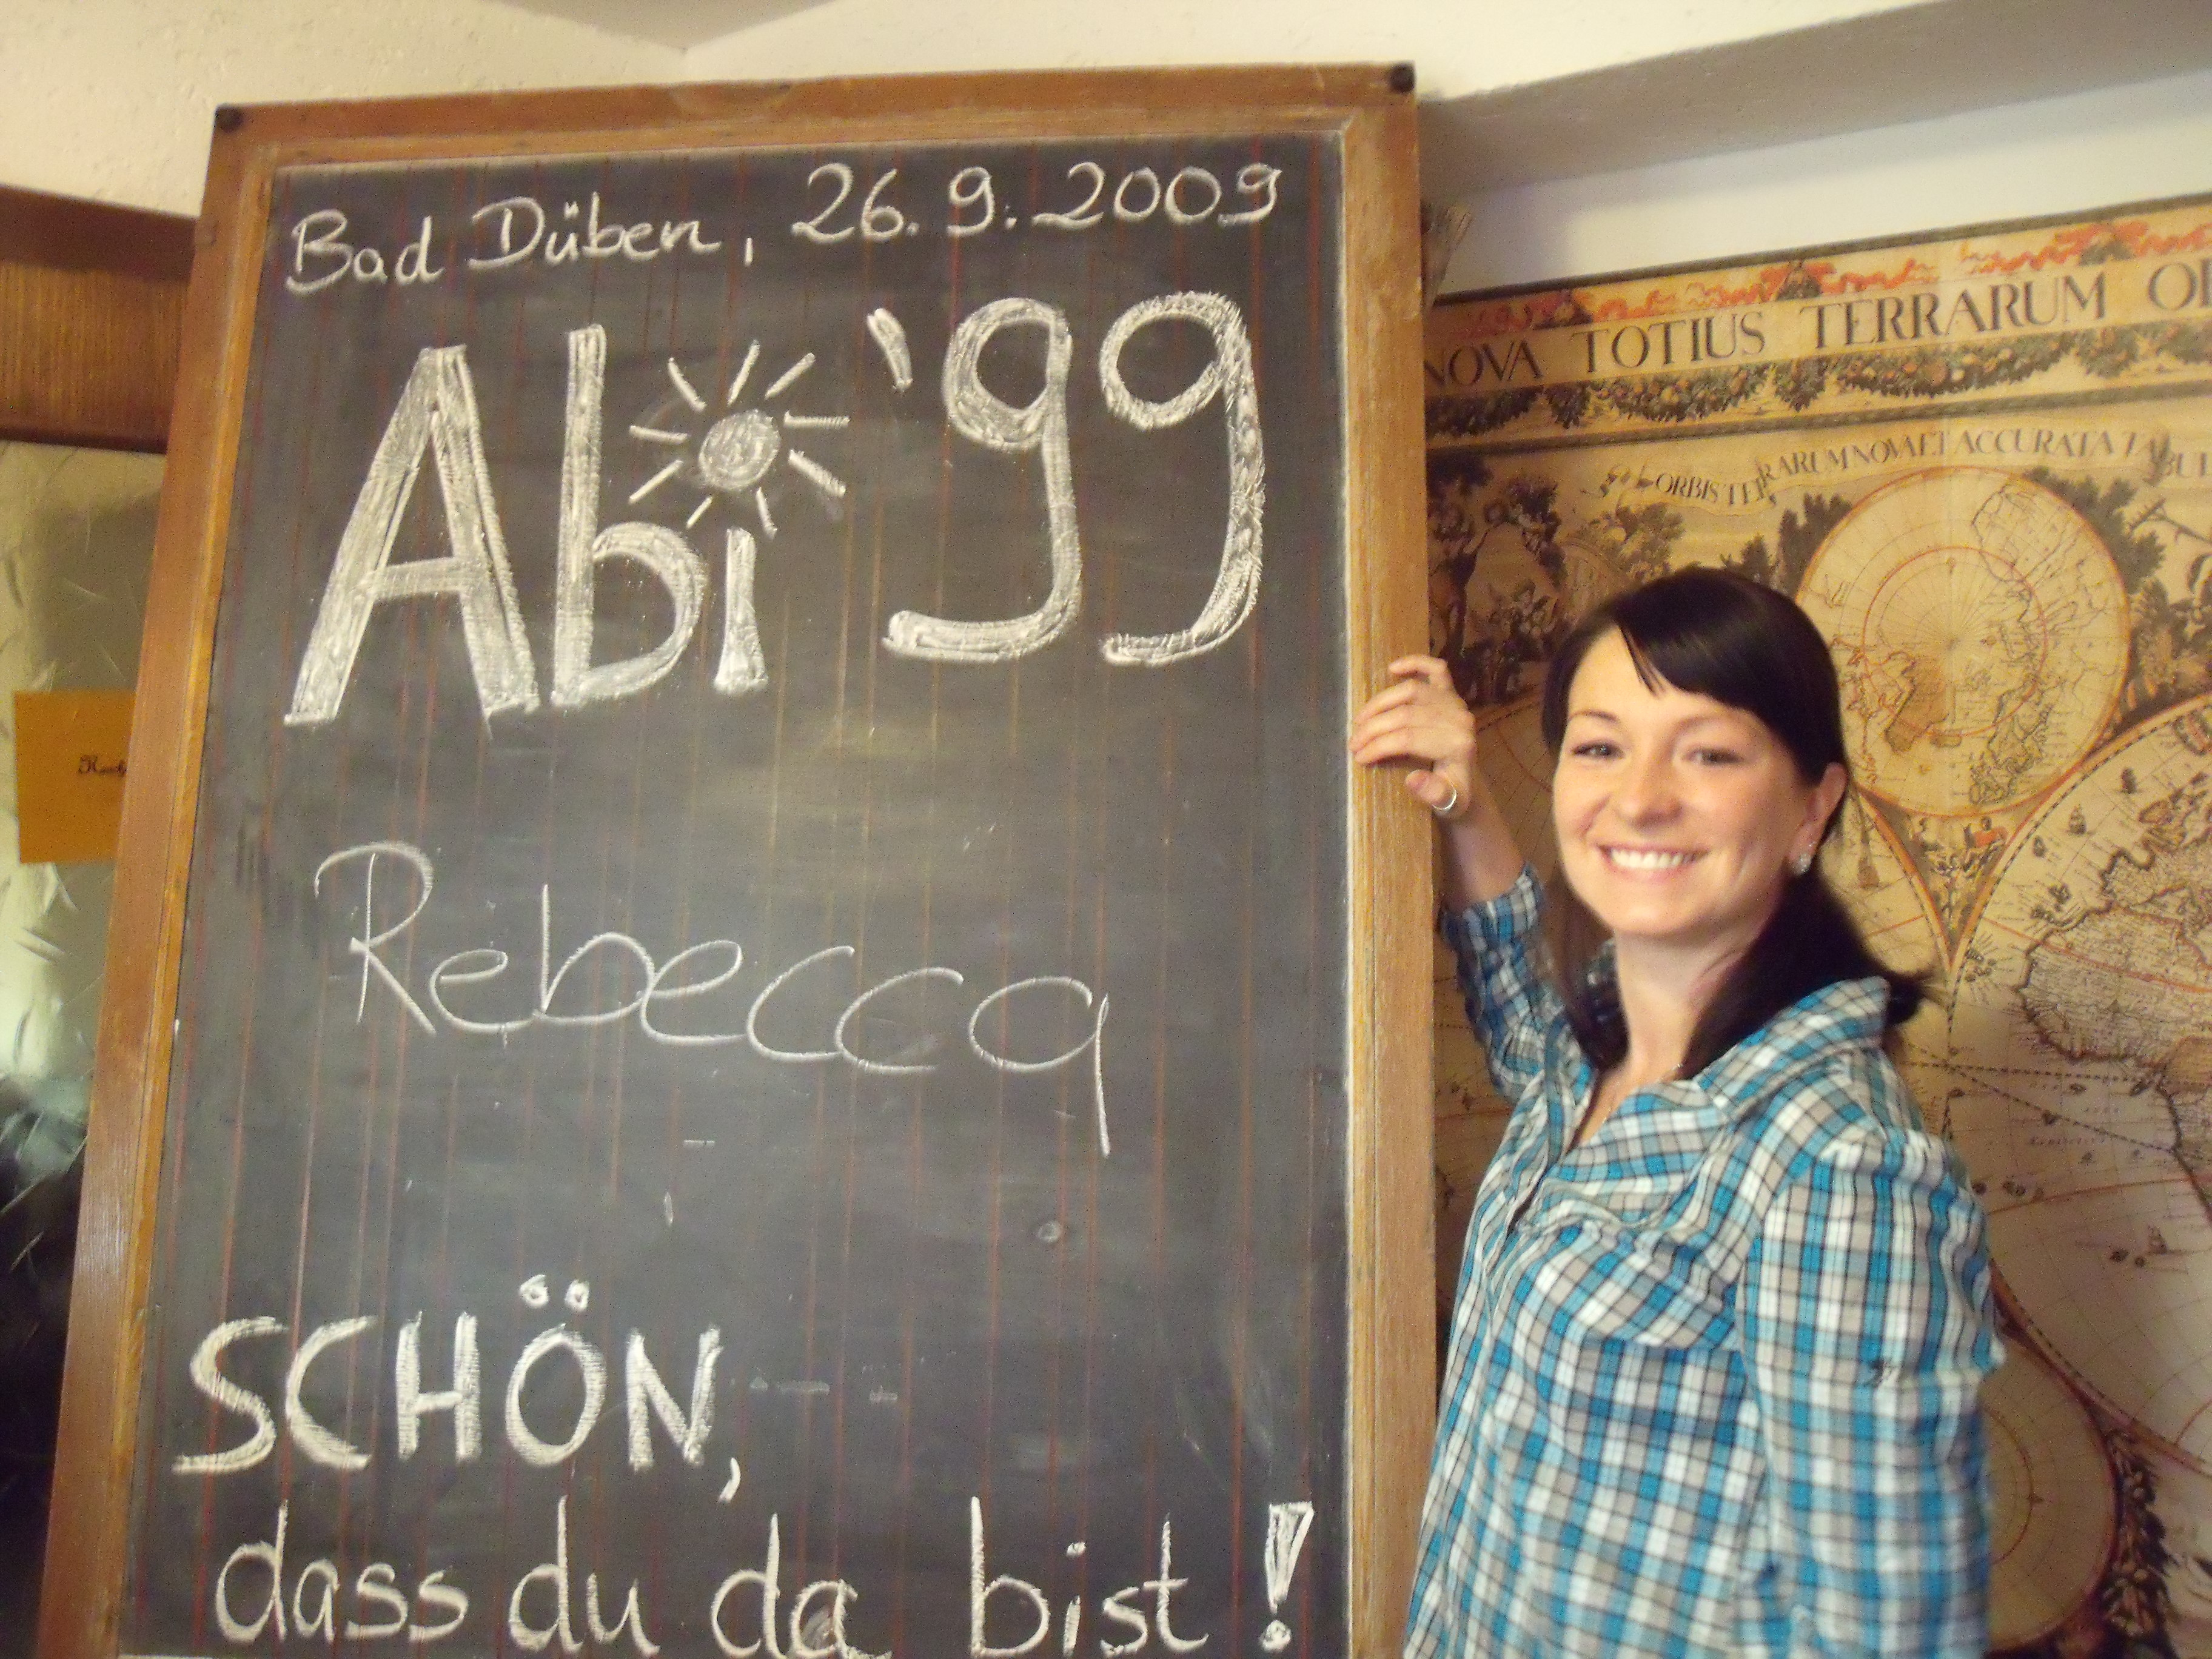 Bad Düben, 26.9.2009
Abi '99
Rebecca
SCHÖN,
dass du da bist!
NOVA TOTIUS TERRARUM OR
ORBIS TERRARUM NOVA ET ACCURATA TABUL